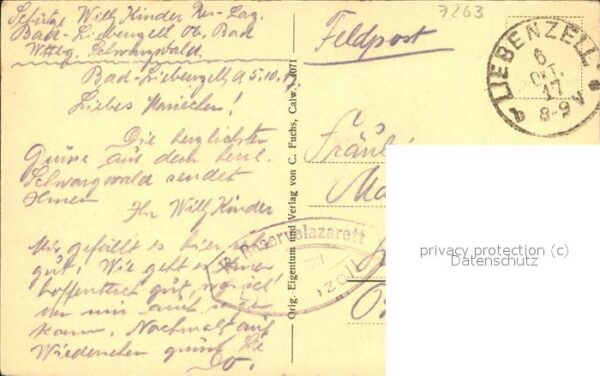 Schütze Willy Kinder Res-Laz.
Bad-Liebenzell Ob, Bad
Württg. Schwarzwald.
Bad-Liebenzell, 5.10.17
Liebes Mariechen!
Die herzlichsten
Grüsse aus dem herrl.
Schwarzwald sendet
Ihnen
Ihr Willy Kinder
Mir gefällt es hier sehr
gut, Wie geht es Ihnen
hoffentlich gut, was ich
von mir auch sagen
kann. Nochmals auf
Wiedersehen grüsst Sie
Do.
Orig. Eigentum und Verlag von C. Fuchs, Calw. 4071
7263
Feldpost
LIEBENZELL
6
OKT.
17
8-9V
b
Fräul
Ma
Reservelazarett
privacy protection (c)
Datenschutz